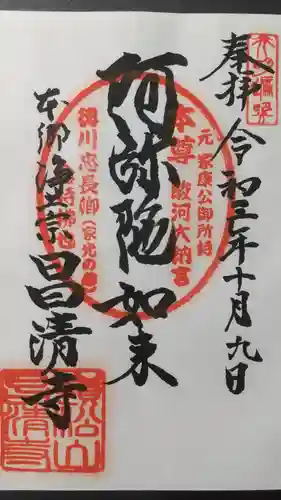 奉拝
令和三年十月九日
阿弥陀如来
本郷 浄土宗 昌清寺
元 家康公御所持
本尊 駿河大納言
徳川忠長卿(家光の弟)